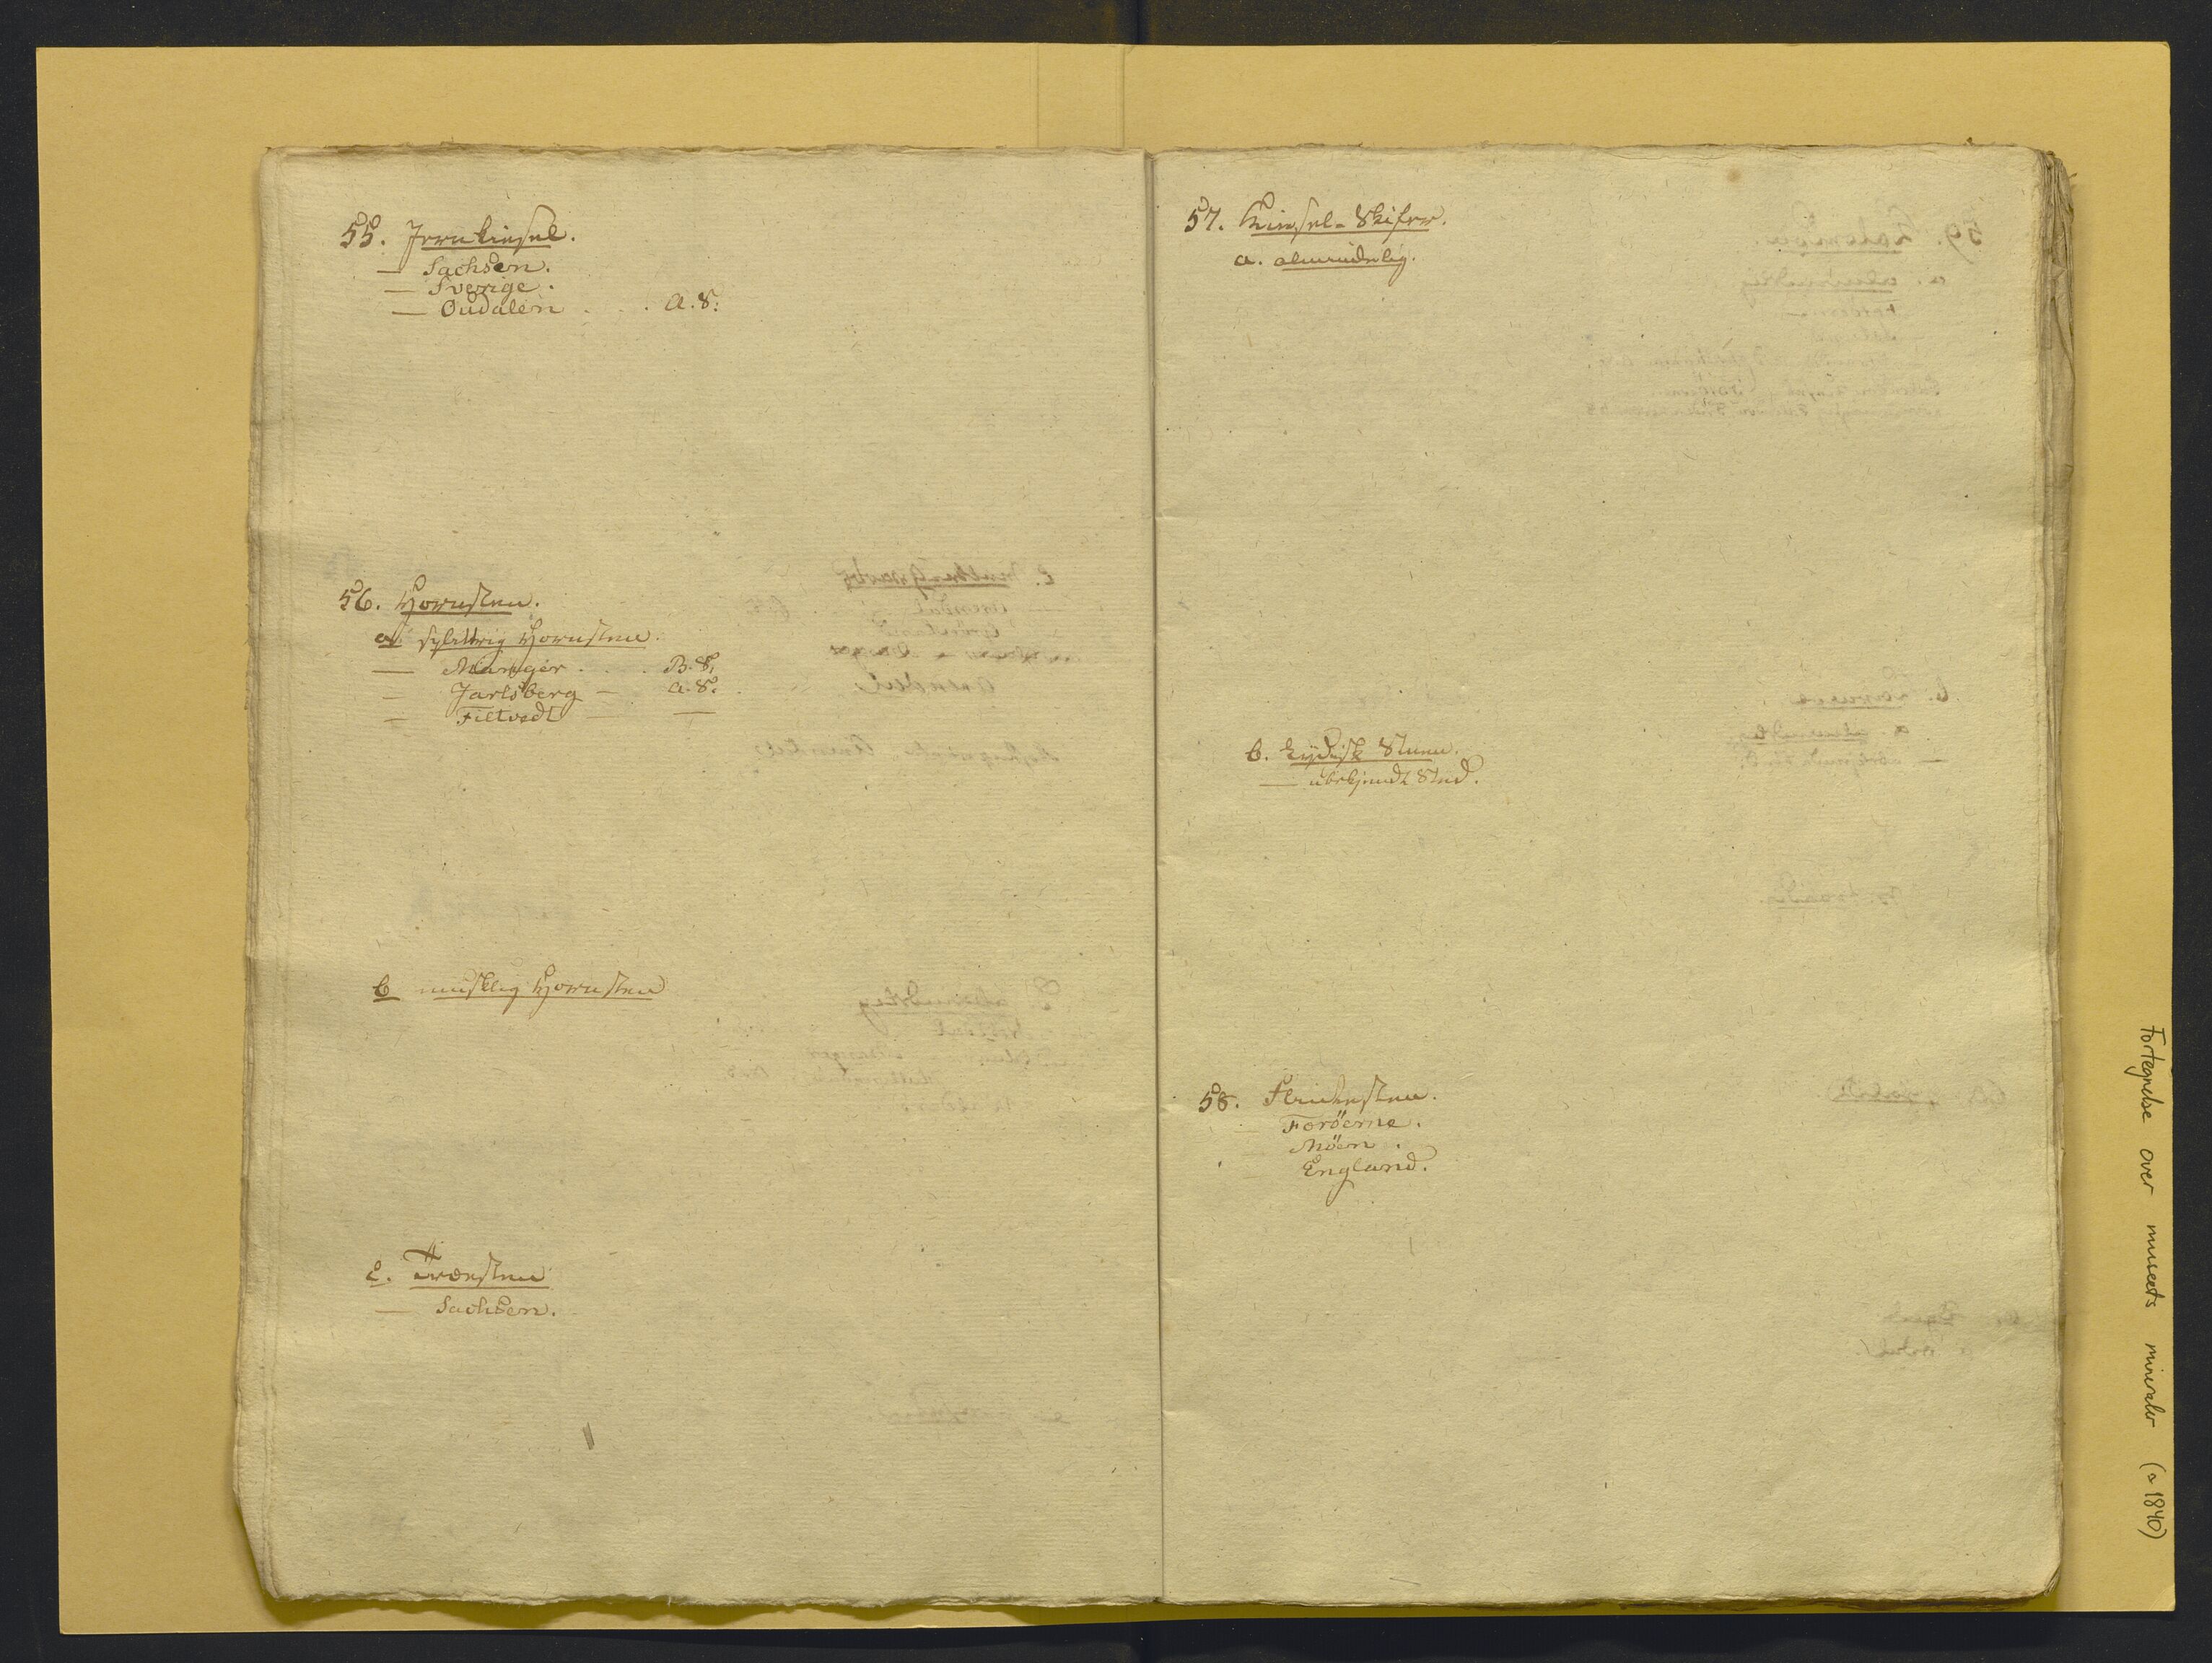 55. Jernkiesel.
— Sachsen.
— Sverige.
— Oudalen . . . A. S:
56. Hornsteen.
a. splittrig Hornsteen.
— Manger . . . B. S.
— Jarlsberg — A. S.
— Filtvedt — —
b muslig Hornsteen
c. Træesteen
— Sachsen.
57. Kiesel-Skifer.
a. almindelig.
b. Lydisk Steen.
— ubekjendt Sted.
58. Flintesteen.
— Foröerne.
— Möen.
— England.
Fortegnelse over museets mineraler (ca 1840)